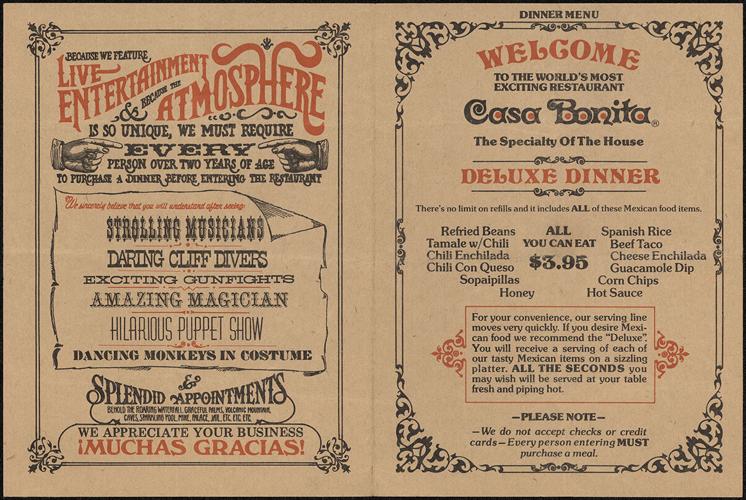 BECAUSE WE FEATURE
LIVE
ENTERTAINMENT
& BECAUSE THE
ATMOSPHERE
IS SO UNIQUE, WE MUST REQUIRE
EVERY
PERSON OVER TWO YEARS OF AGE
TO PURCHASE A DINNER BEFORE ENTERING THE RESTAURANT
We sincerely believe that you will understand after seeing:
STROLLING MUSICIANS
DARING CLIFF DIVERS
EXCITING GUNFIGHTS
AMAZING MAGICIAN
HILARIOUS PUPPET SHOW
DANCING MONKEYS IN COSTUME
&
SPLENDID APPOINTMENTS
BEHOLD THE ROARING WATERFALL, GRACEFUL PALMS, VOLCANIC MOUNTAIN,
CAVES, SPARKLING POOL, MINE, PALACE, JAIL, ETC. ETC. ETC.
WE APPRECIATE YOUR BUSINESS
¡MUCHAS GRACIAS!
DINNER MENU
WELCOME
TO THE WORLD'S MOST
EXCITING RESTAURANT
Casa Bonita®
The Specialty Of The House
DELUXE DINNER
There's no limit on refills and it includes ALL of these Mexican food items.
Refried Beans
Tamale w/Chili
Chili Enchilada
Chili Con Queso
Sopaipillas
Honey
ALL
YOU CAN EAT
$3.95
Spanish Rice
Beef Taco
Cheese Enchilada
Guacamole Dip
Corn Chips
Hot Sauce
For your convenience, our serving line
moves very quickly. If you desire Mexi-
can food we recommend the "Deluxe".
You will receive a serving of each of
our tasty Mexican items on a sizzling
platter. ALL THE SECONDS you
may wish will be served at your table
fresh and piping hot.
—PLEASE NOTE—
—We do not accept checks or credit
cards—Every person entering MUST
purchase a meal.